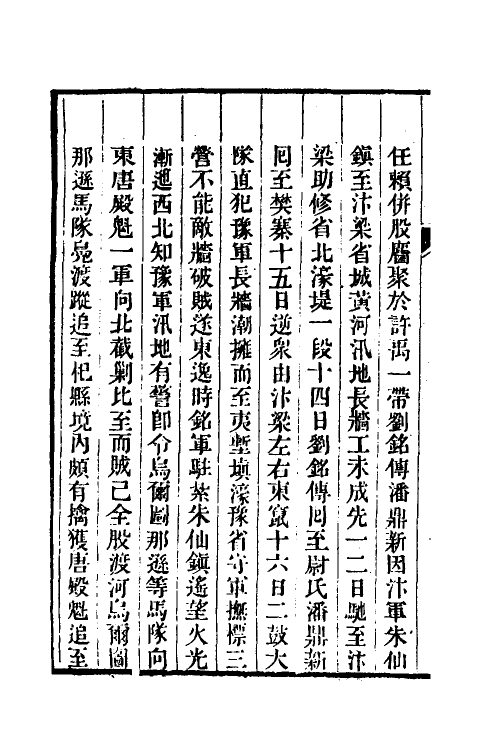 任賴併股麕聚於許禹一帶劉銘傳潘鼎新因汴軍朱仙
鎮至汴梁省城黃河汛地長牆工未成先一二日馳至汴
梁助修省北濠堤一段十四日劉銘傳囘至尉氏潘鼎新
囘至樊寨十五日逆衆由汴梁左右東竄十六日二鼓大
隊直犯豫軍長牆潮擁而至夷塹塡濠豫省守軍撫標三
營不能敵牆破賊遂東逸時銘軍駐紮朱仙鎮遙望火光
漸迤西北知豫軍汛地有警卽令烏爾圖那遜等馬隊向
東唐殿魁一軍向北截剿比至而賊已全股渡河烏爾圖
那遜馬隊鳧渡蹤追至杞縣境內頗有擒獲唐殿魁追至